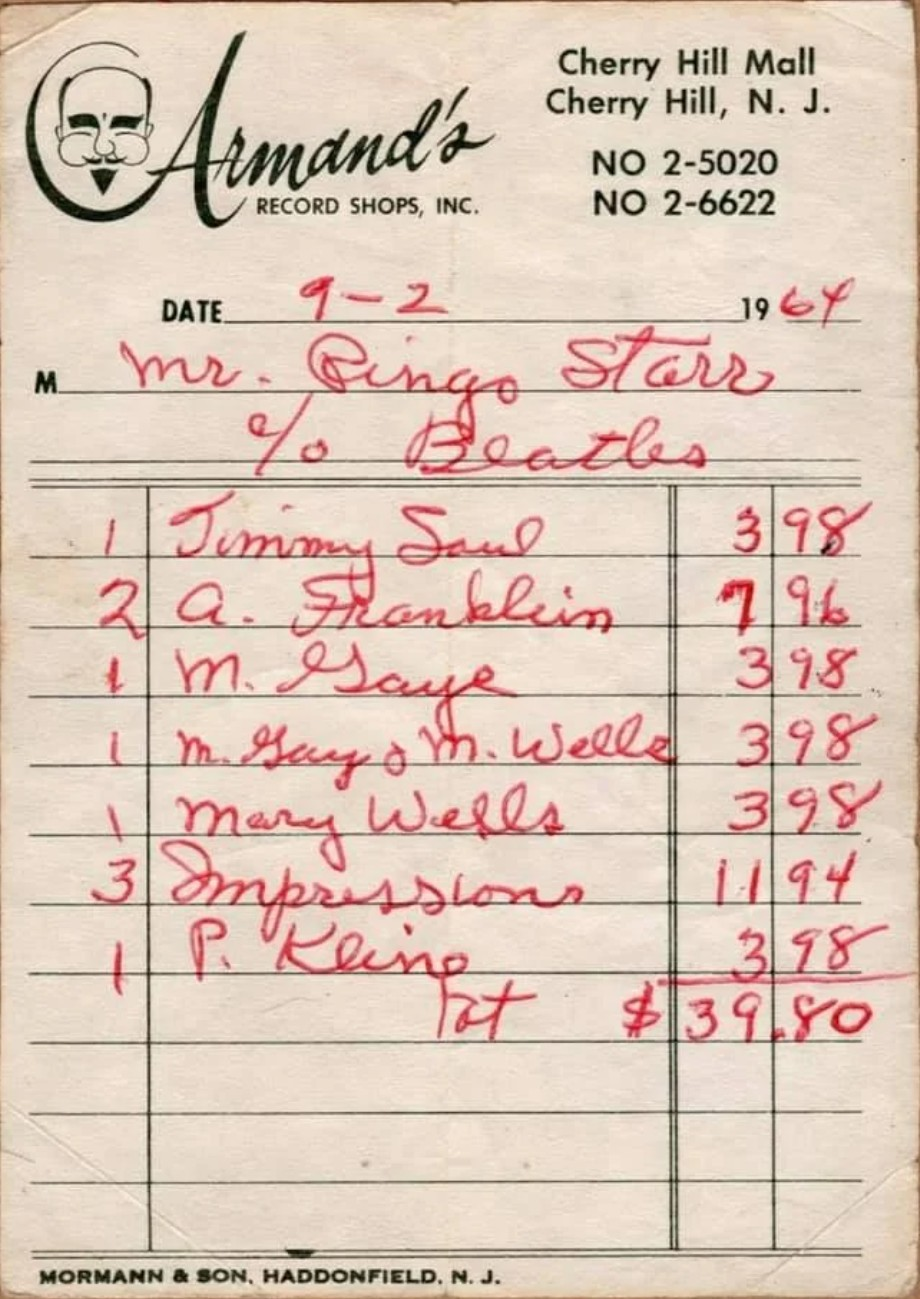 Armand's
RECORD SHOPS, INC.
Cherry Hill Mall
Cherry Hill, N. J.
NO 2-5020
NO 2-6622
DATE 9-2 1964
M Mr. Ringo Starr
c/o Beatles
1 Jimmy Soul 3 98
2 A. Franklin 7 96
1 M. Gaye 3 98
1 M. Gay & M. Wells 3 98
1 Mary Wells 3 98
3 Impressions 11 94
1 P. Kling 3 98
Tot $39.80
MORMANN & SON, HADDONFIELD, N. J.